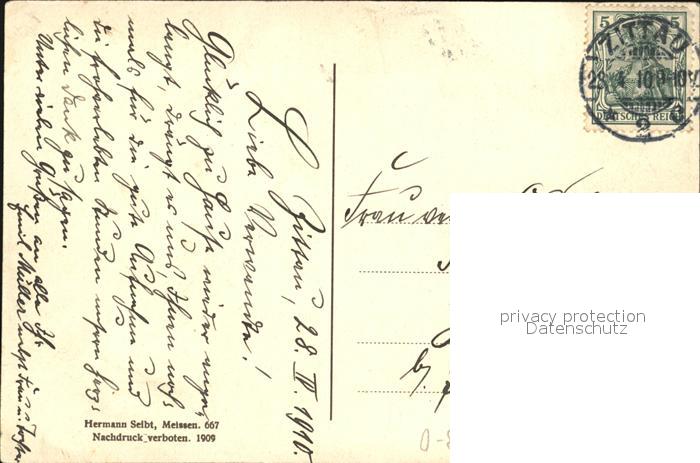 Zittau, 28. IV. 1910.
Liebe Verwandte!
Glücklich zu Hause wieder ange-
langt, drängt es uns, Ihnen noch-
mals für die gute Aufnahme und
die frohverlebten Stunden unsern herz-
lichen Dank zu sagen.
Unter vielen Grüßen an alle Ihr
Emil Müller nebst Frau u. Tochter
Hermann Seibt, Meissen. 667
Nachdruck verboten. 1909
5 5
DEUTSCHES REICH
ZITTAU
28.4.10 9-10V
* 2 c
Frau
privacy protection
Datenschutz